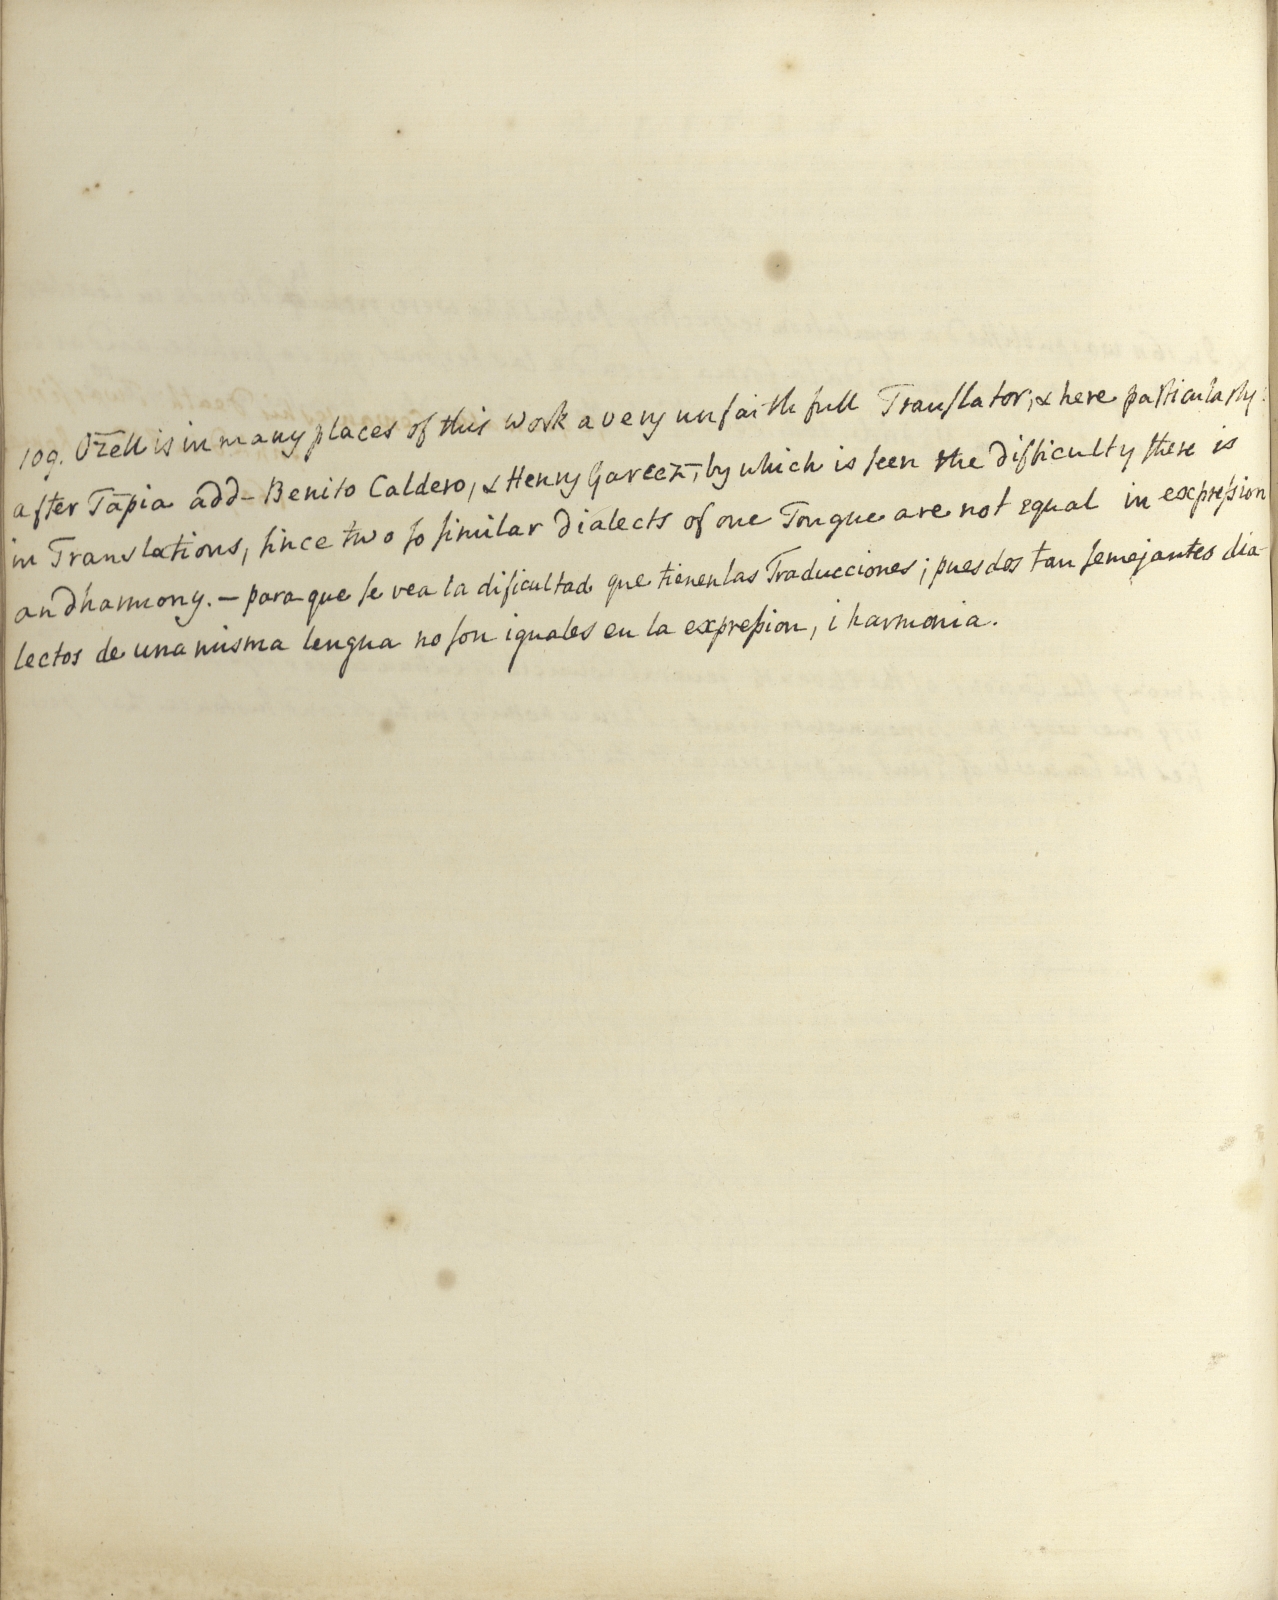 109. Ozell is in many places of this work a very unfaithfull Tranſlator; & here particularly:
after Tapia add – Benito Caldero, & Henry Garcez; by which is ſeen the difficulty there is
in Translations, ſince two ſo ſimilar Dialects of one Tongue are not equal in expreſsion
and harmony. – para que ſe vea la dificultad que tienen las Traducciones; pues dos tan ſemejantes dia-
lectos de una misma lengua no ſon iguales en la expreſsion, i harmonia.